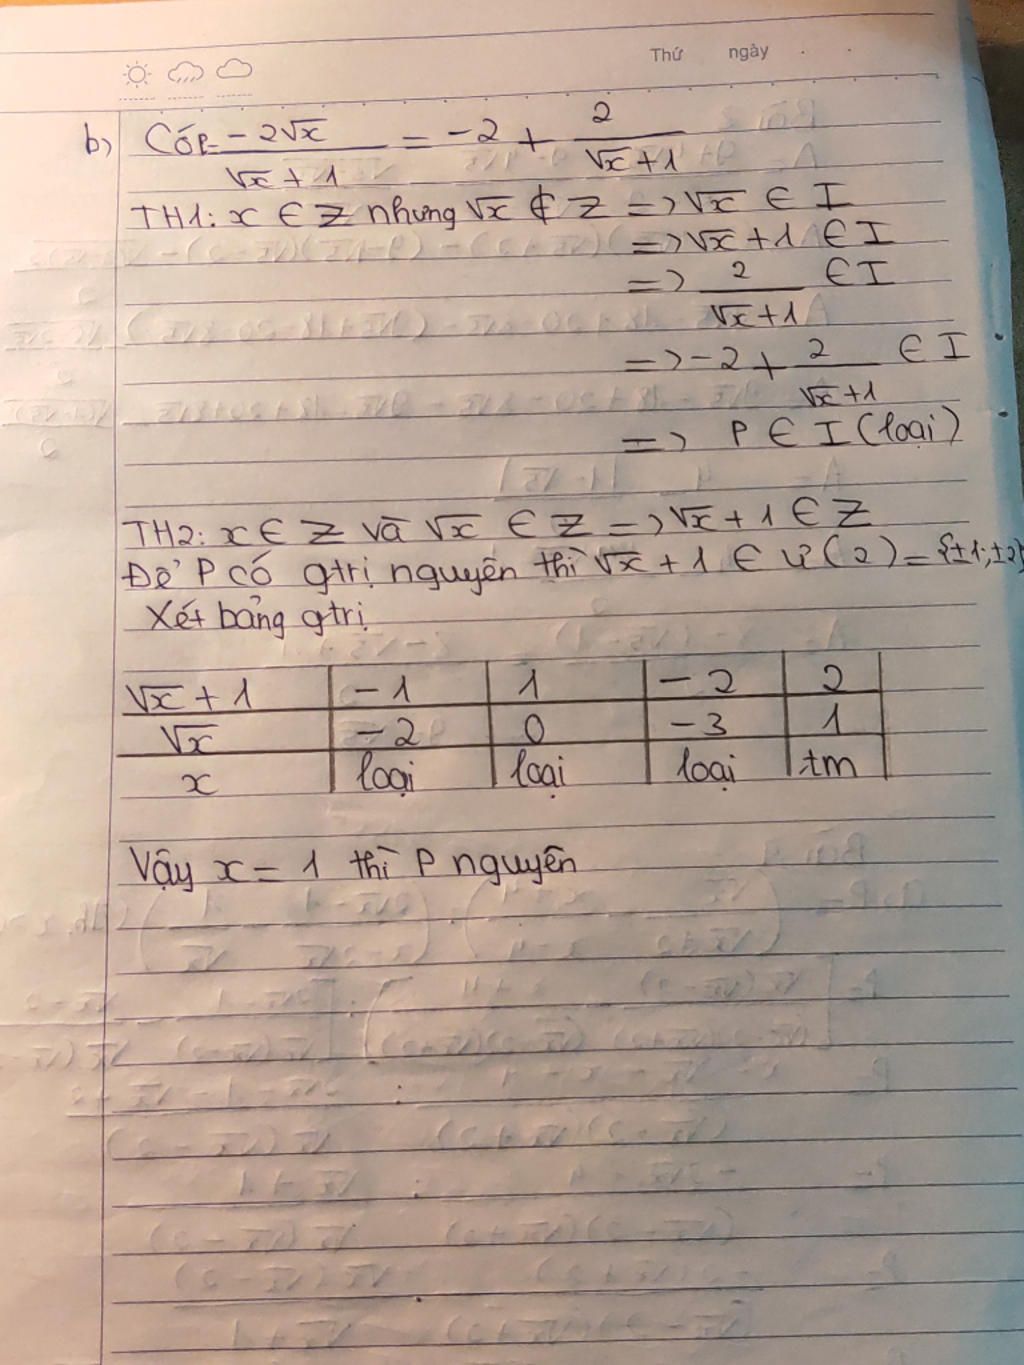 Thứ ngày
b) Có P = -2√x / (√x + 1) = -2 + 2 / (√x + 1)
TH1: x ∈ Z nhưng √x ∉ Z => √x ∈ I
=> √x + 1 ∈ I
=> 2 / (√x + 1) ∈ I
=> -2 + 2 / (√x + 1) ∈ I
=> P ∈ I (loại)
TH2: x ∈ Z và √x ∈ Z => √x + 1 ∈ Z
Để P có gtrị nguyên thì √x + 1 ∈ Ư(2) = {±1; ±2}
Xét bảng gtrị
√x + 1 -1 1 -2 2
√x -2 0 -3 1
x loại loại loại tm
Vậy x = 1 thì P nguyên